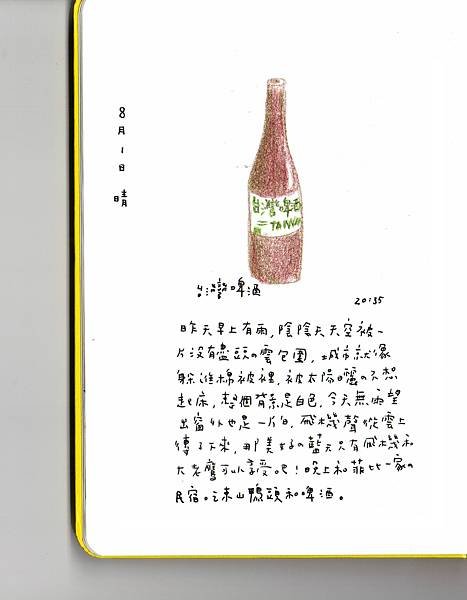 8月1日 晴
台灣啤酒
TAIWAN
台灣啤酒
20:35
昨天早上有雨,陰陰天天空被一
片沒有盡頭の雲包圍,城市就像
躲進棉被裡,被太陽曬の不想
起床,整個背景是白色,今天無雨望
出窗外也是一片白,飛機聲從雲上
傳了下來,那美好の藍天只有飛機和
大老鷹可以享受吧!晚上和菲比一家の
民宿。東山鴨頭和啤酒。